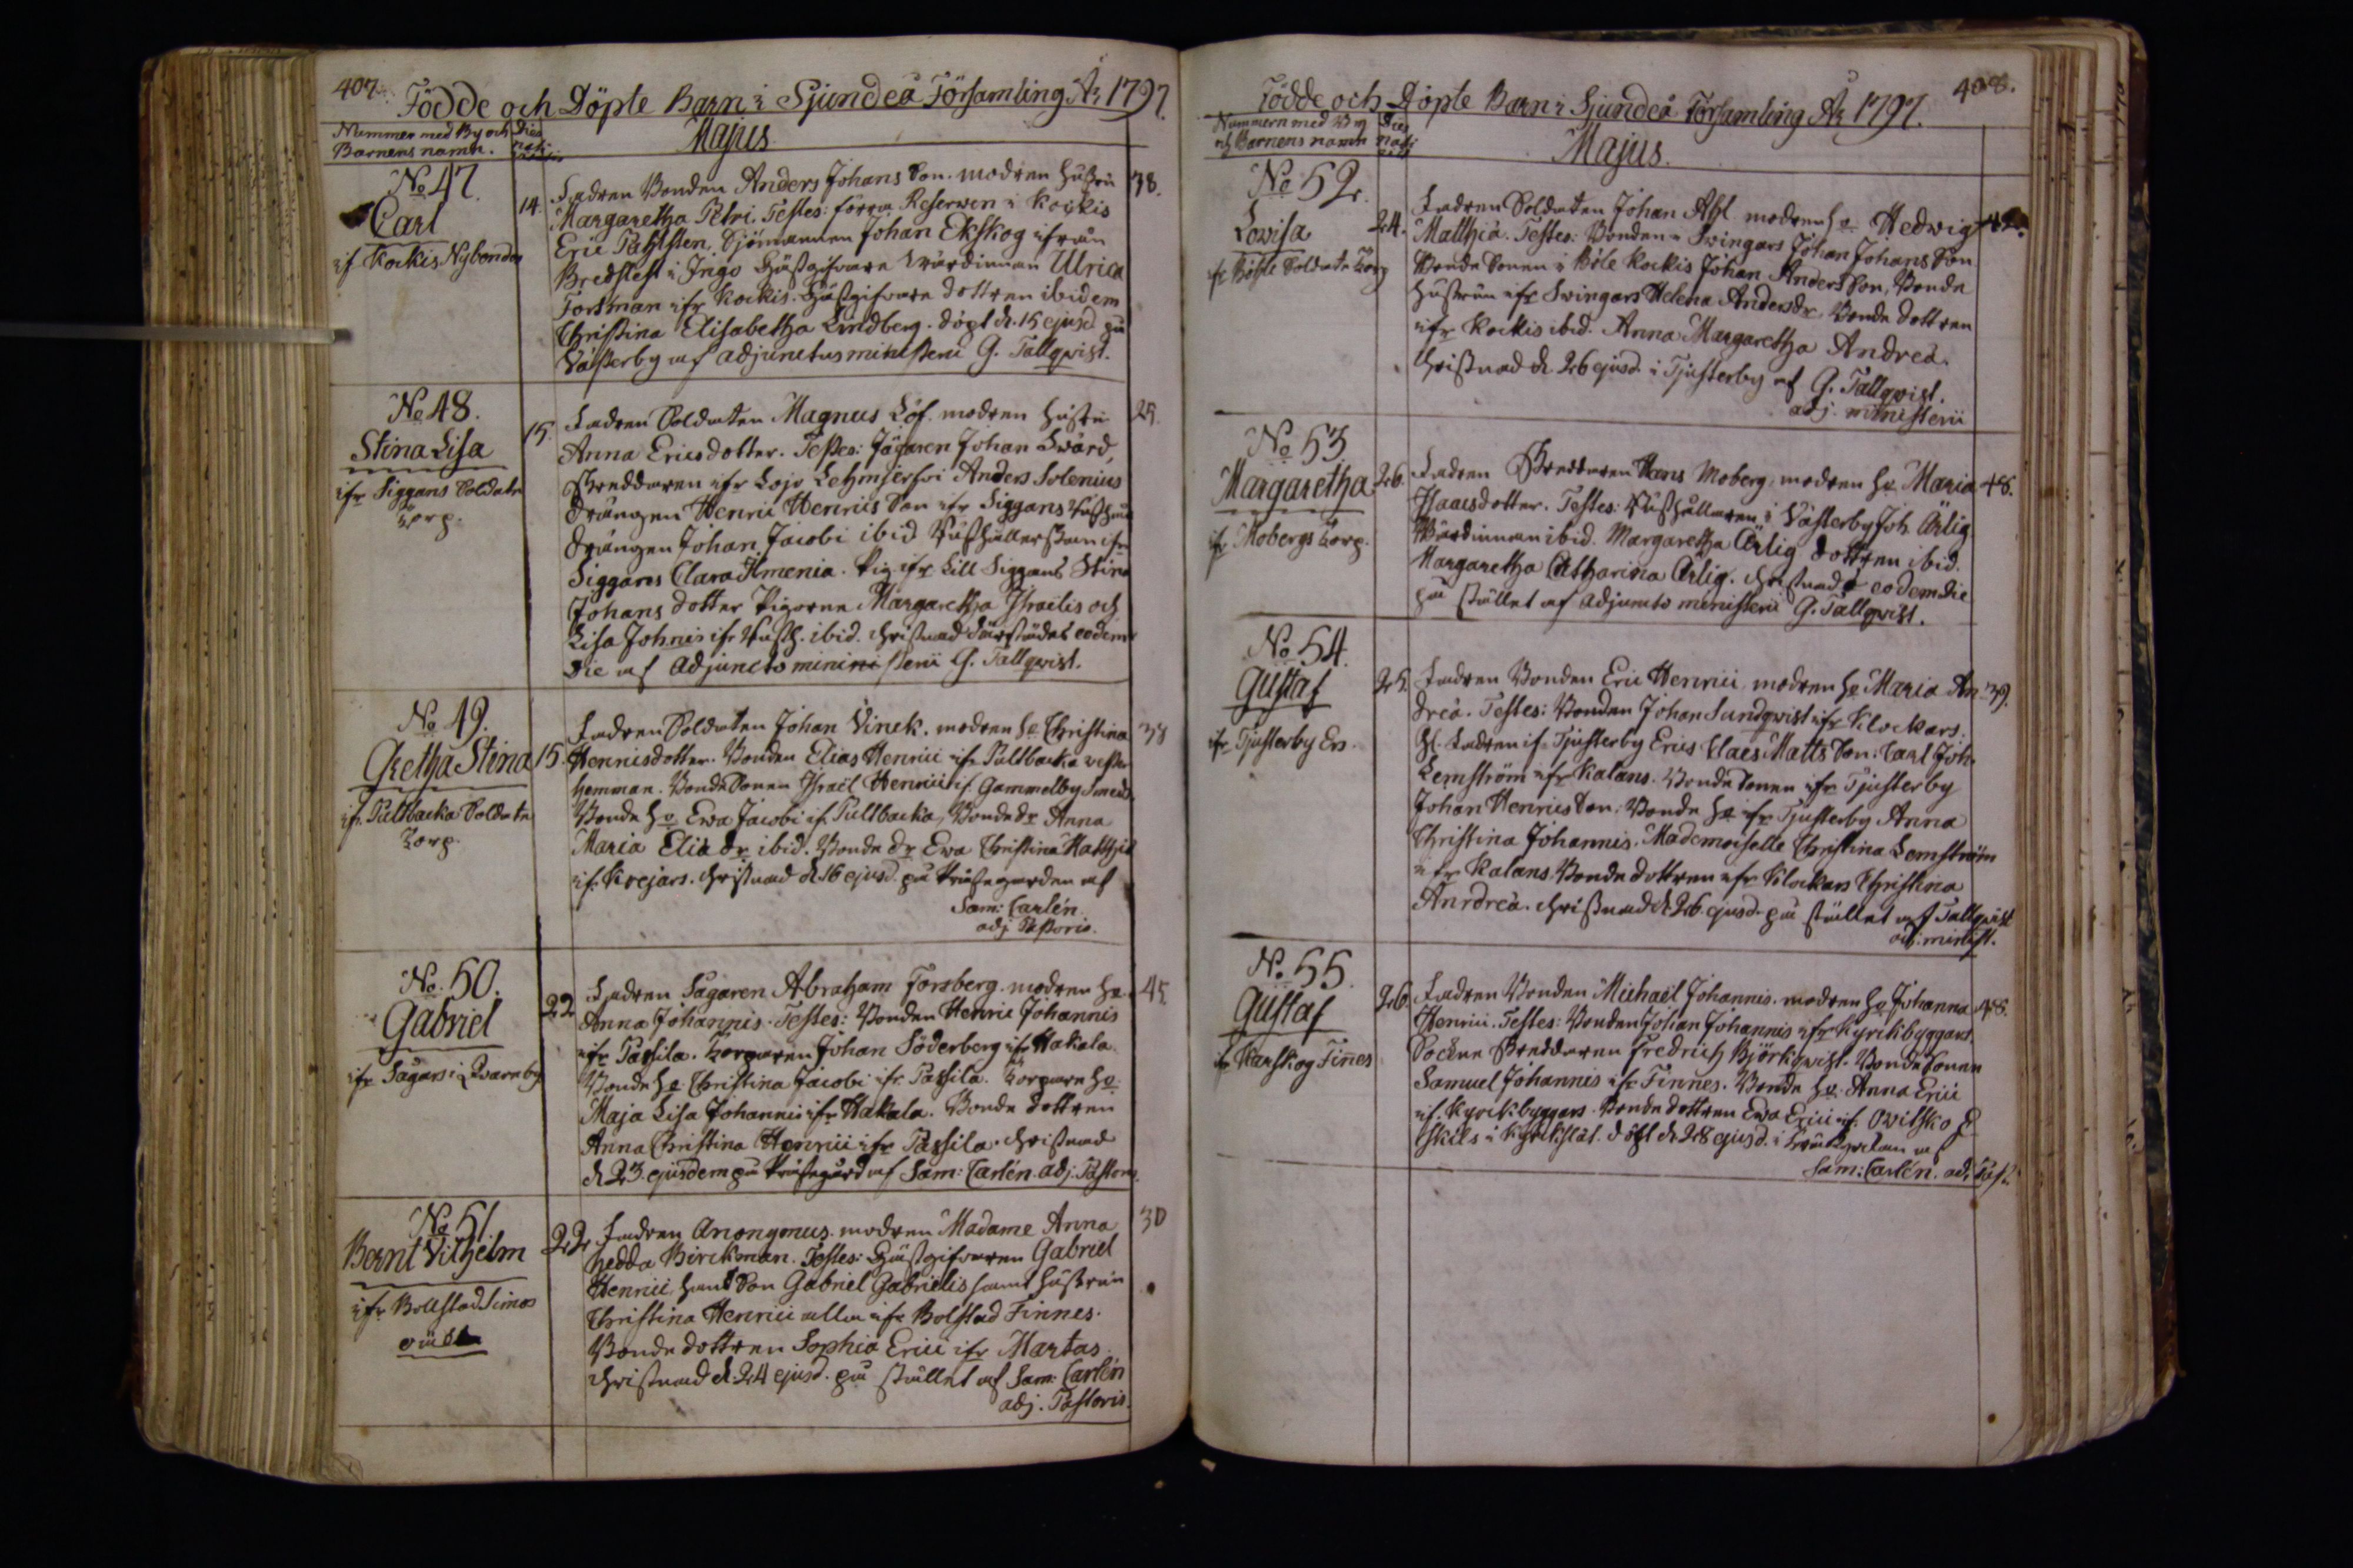 407.
Födde och Döpte Barn i Sjundeå Församling Åhr 1797.
Nummer med By och
Barnens namn.
Dies
nati
Majus
No 47.
Carl
if Kockis Nybondas
14.
Fadren Bonden Anders Johans Son. modren hustru
38.
Margaretha Petri. Testes: förra Reserven i Kockis
Eric Pahlsten, Sjömannen Johan Ekskog ifrån
Bredslest i Ingo Gästgifvare Wärdinnan Ulrica
Forsman ifr Kockis. Gästgifvare dottren ibidem
Christina Elisabetha Lindberg. döpt d. 15 ejusd på
Västerby af adjunctus ministerii G. Tallqvist.
No 48.
Stina Lisa
ifr Siggans Soldate
Torp.
15.
Fadren Soldaten Magnus Löf. modren hustru
25.
Anna Ericsdotter. Testes: Jägaren Johan Swärd,
Skreddaren ifr Lojo Anders Solenius
drängen Henric Henrics Son ifr Siggans
drängen Johan Jacobi ibid Rusthållerskan ifr
Siggans Clara Amenia. Pig. ifr Lill Siggans Stina
Johans dotter Pigorne Margaretha Israelis och
Lisa Johnis ifr Rusth. ibid. christnad därstädes eodem
die af Adjuncto ministerii G. Tallqvist.
No 49.
Gretha Stina
ifr. Pultbacka Soldate
Torp.
15.
Fadren Soldaten Johan Vinek. modren ho Christina
38
Henricsdotter. Bonden Elias Henrici ifr Pultbacka vester
hemman. Bonde Sonen Israel Henrici if. Gammelby Smeds.
Bonde ho Ewa Jacobi if Pultbacka, Bonde dr Anna
Maria Eliæ dr ibid. Bonde dr Ewa Christina Matthiæ
if Krejars. christnad d. 16 ejusd. på Prästegården af
Sam: Carlén
adj Pastoris.
No. 50.
Gabriel
ifr Sågars i Qvarnby
22
Fadren Sågaren Abraham Forsberg. modren ho.
45.
Anna Johannis. Testes: Bonden Henric Johannis
ifr Passila. Torparen Johan Söderberg ifr Hakala.
Bonde ho Christina Jacobi ifr Passila. Torpare ho.
Maja Lisa Johannis ifr Hakala. Bonde dottren
Anna Christina Henrici ifr Passila. christnad
d. 23. ejusdem på Prästegård af Sam: Carlén adj: Pastoris.
No 51.
Bernt Vilhelm
ifr Bollstad Simos
22
Fadren Anonymus. modren Madame Anna
30
Hedda Birckman. Testes: Gästgifvaren Gabriel
Henrici, hans Son Gabriel Gabrielis samt hustrun
Christina Henrici alla ifr Bolstad Finnes.
Bonde dottren Sophia Erici ifr Martas.
christnad d. 24 ejusd. på stället af Sam: Carlén
adj. Pastoris.
408.
Födde och Döpte Barn i Sjundeå Församling År 1797.
Nummern med By
och Barnens namn
Dies
nati
Majus.
No 52.
Lovisa
fr Böhle Soldate Torp
24.
Fadren Soldaten Johan Ahl modren ho Hedwig
42.
Matthiæ. Testes: Bonden i Swingars Johan Johans Son
Bonde Sonen i Böle Kockis Johan Anders Son, Bonde
hustrun ifr Swingars Helena Andersdr, Bonde dottren
ifr Kockis ibid. Anna Margaretha Andreæ.
christnad d. 26 ejusd. i Tjusterby af G. Tallqvist.
adj. ministerii
No 53.
Margaretha
ifr Mobergs Torp.
26.
Fadren Skreddaren Hans Moberg, modren ho Maria
48.
Isaacsdotter. Testes: Rusthållaren i Västerby Joh. Ärlig
Wärdinnan ibid. Margaretha Ärlig dottren ibid.
Margaretha Catharina Ärlig. christnad eodem die
på stället af Adjuncto ministerii G. Tallqvist.
No 54.
Gustaf
ifr Tjusterby Ers.
25.
Fadren Bonden Eric Henrici, modren ho Maria An-
39.
dreæ. Testes: Bonden Johan Sundqvist ifr Klockars.
Fadren if Tjusterby Erics Claes Matts Son. Carl Joh.
Lemström ifr Kalans. Bonde Sonen ifr Tjusterby
Johan Henrics Son. Bonde ho ifr Tjusterby Anna
Christina Johannis. Mademoiselle Christina Lemström
ifr Kalans. Bonde dottren ifr Klockars Christina
Anrdreæ. christnad d. 26 ejusd. på stället af Tallqvist
adj. minist.
No. 55.
Gustaf
ifr Karskog Finnes
26.
Fadren Bonden Michaël Johannis. modren ho Johanna
48.
Henrici. Testes: Bonden Johan Johannis ifr Kyrckbyggars.
Sockne Skreddaren Fredrich Björkqwist. Bonde Sonen
Samuel Johannis ifr Finnes. Bonde ho Anna Erici
if. Kyrckbyggars. Bonde dottren Ewa Erici if. Owitsko E
skils i Kyrckslät. döpt d. 28 ejusd. i af
Sam: Carlén. adj Past.